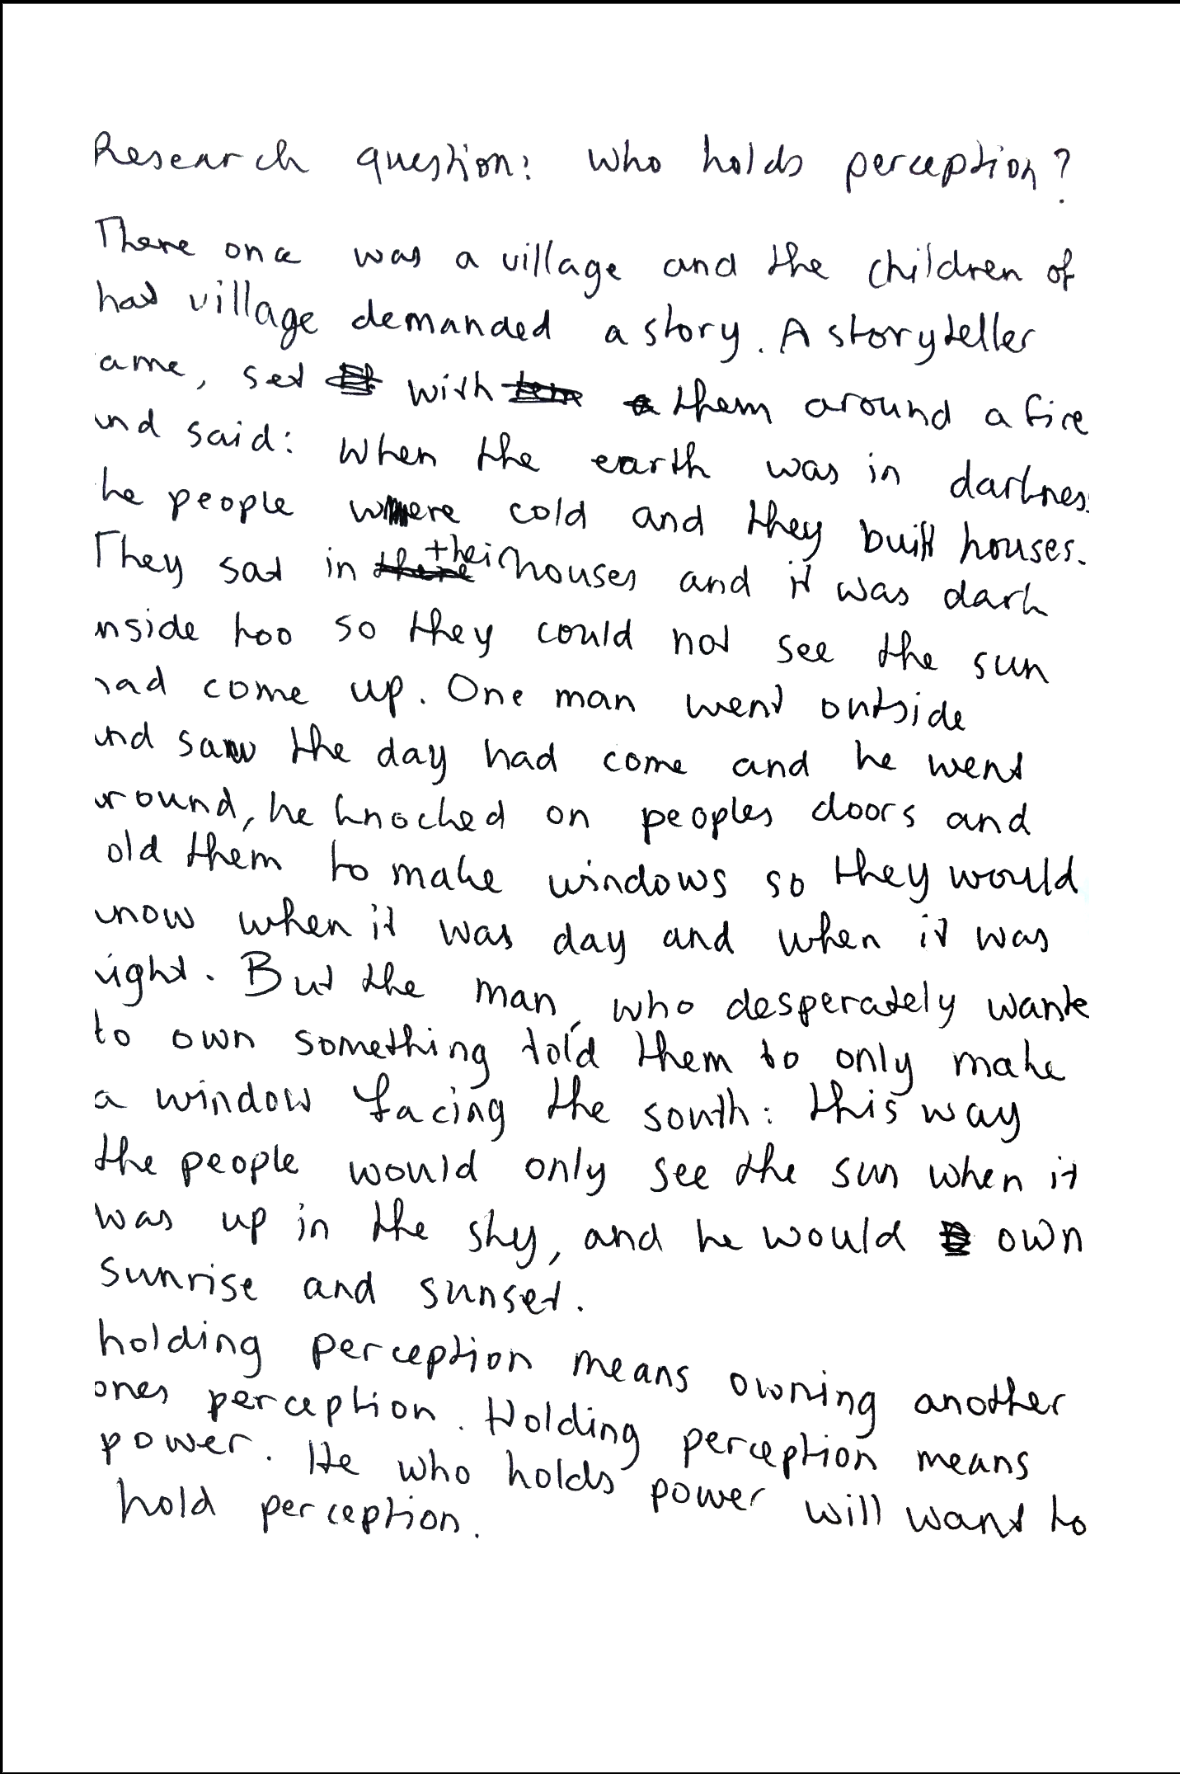 Research question: who holds perception?
There once was a village and the children of
hat village demanded a story. A storyteller
ame, set with them around a fire
and said: When the earth was in darknes
he people were cold and they built houses.
They sat in their houses and it was dark
nside too so they could not see the sun
had come up. One man went outside
and saw the day had come and he went
around, he knocked on peoples doors and
old them to make windows so they would
know when it was day and when it was
night. But the man, who desperately wante
to own something told them to only make
a window facing the south: this way
the people would only see the sun when it
was up in the sky, and he would own
sunrise and sunset.
holding perception means owning another
ones perception. Holding perception means
power. He who holds power will want to
hold perception.